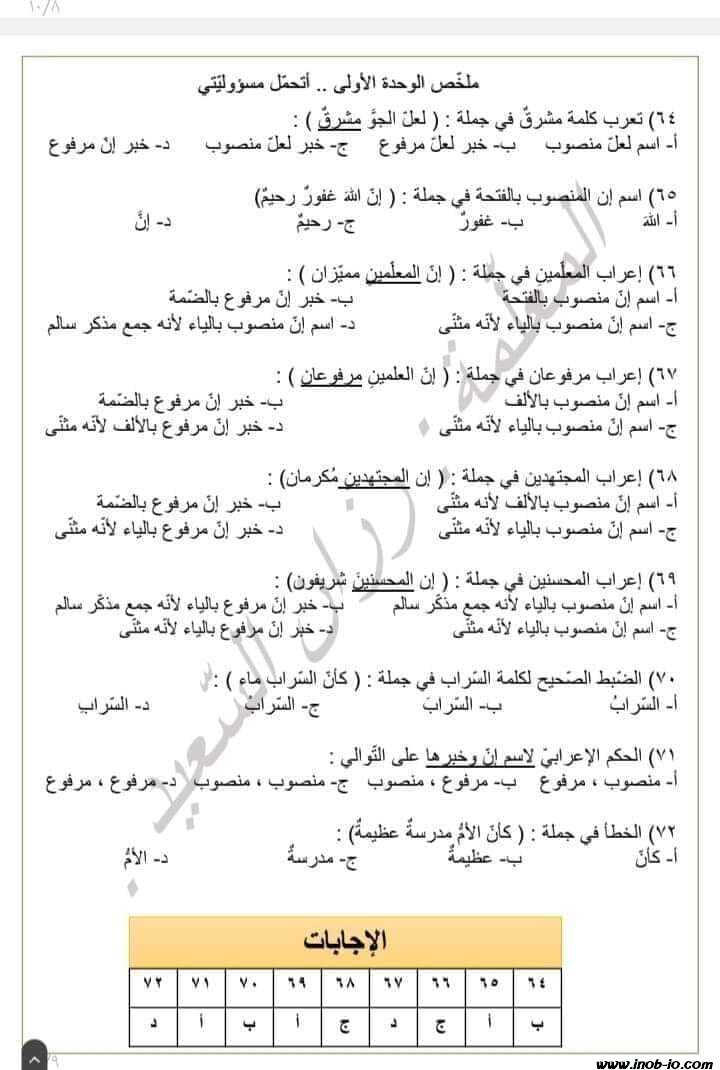 ١٠/٨
ملخّص الوحدة الأولى .. أتحمّل مسؤوليّتي
٦٤) تعرب كلمة مشرقٌ في جملة : ( لعلّ الجوَّ مشرقٌ ) :
أ- اسم لعلّ منصوب ب- خبر لعلّ مرفوع ج- خبر لعلّ منصوب د- خبر إنّ مرفوع
٦٥) اسم إن المنصوب بالفتحة في جملة : ( إنّ اللهَ غفورٌ رحيمٌ)
أ- اللهَ ب- غفورٌ ج- رحيمٌ د- إنَّ
٦٦) إعراب المعلّمينِ في جملة : ( إنّ المعلّمينِ مميّزان ) :
أ- اسم إنّ منصوب بالفتحة ب- خبر إنّ مرفوع بالضّمة
ج- اسم إنّ منصوب بالياء لأنّه مثنّى د- اسم إنّ منصوب بالياء لأنه جمع مذكر سالم
٦٧) إعراب مرفوعان في جملة : ( إنّ العلمينِ مرفوعان ) :
أ- اسم إنّ منصوب بالألف ب- خبر إنّ مرفوع بالضّمة
ج- اسم إنّ منصوب بالياء لأنّه مثنّى د- خبر إنّ مرفوع بالألف لأنّه مثنّى
٦٨) إعراب المجتهدين في جملة : ( إن المجتهدين مُكرمان) :
أ- اسم إنّ منصوب بالألف لأنه مثنّى ب- خبر إنّ مرفوع بالضّمة
ج- اسم إنّ منصوب بالياء لأنّه مثنّى د- خبر إنّ مرفوع بالياء لأنّه مثنّى
٦٩) إعراب المحسنين في جملة : ( إن المحسنينَ شريفون) :
أ- اسم إنّ منصوب بالياء لأنه جمع مذكّر سالم ب- خبر إنّ مرفوع بالياء لأنّه جمع مذكّر سالم
ج- اسم إنّ منصوب بالياء لأنّه مثنّى د- خبر إنّ مرفوع بالياء لأنّه مثنّى
٧٠) الضّبط الصّحيح لكلمة السّراب في جملة : ( كأنّ السّراب ماء ) :
أ- السّرابُ ب- السّرابَ ج- السّرابْ د- السّرابِ
٧١) الحكم الإعرابيّ لاسم إنّ وخبرها على التّوالي :
أ- منصوب ، مرفوع ب- مرفوع ، منصوب ج- منصوب ، منصوب د- مرفوع ، مرفوع
٧٢) الخطأ في جملة : ( كأنّ الأمُّ مدرسةٌ عظيمةٌ) :
أ- كأنّ ب- عظيمةٌ ج- مدرسةٌ د- الأمُّ
المعلّمة : رزان السّعيد
الإجابات
٦٤ ٦٥ ٦٦ ٦٧ ٦٨ ٦٩ ٧٠ ٧١ ٧٢
ب أ ج د ج أ ب أ د
www.inob-jo.com